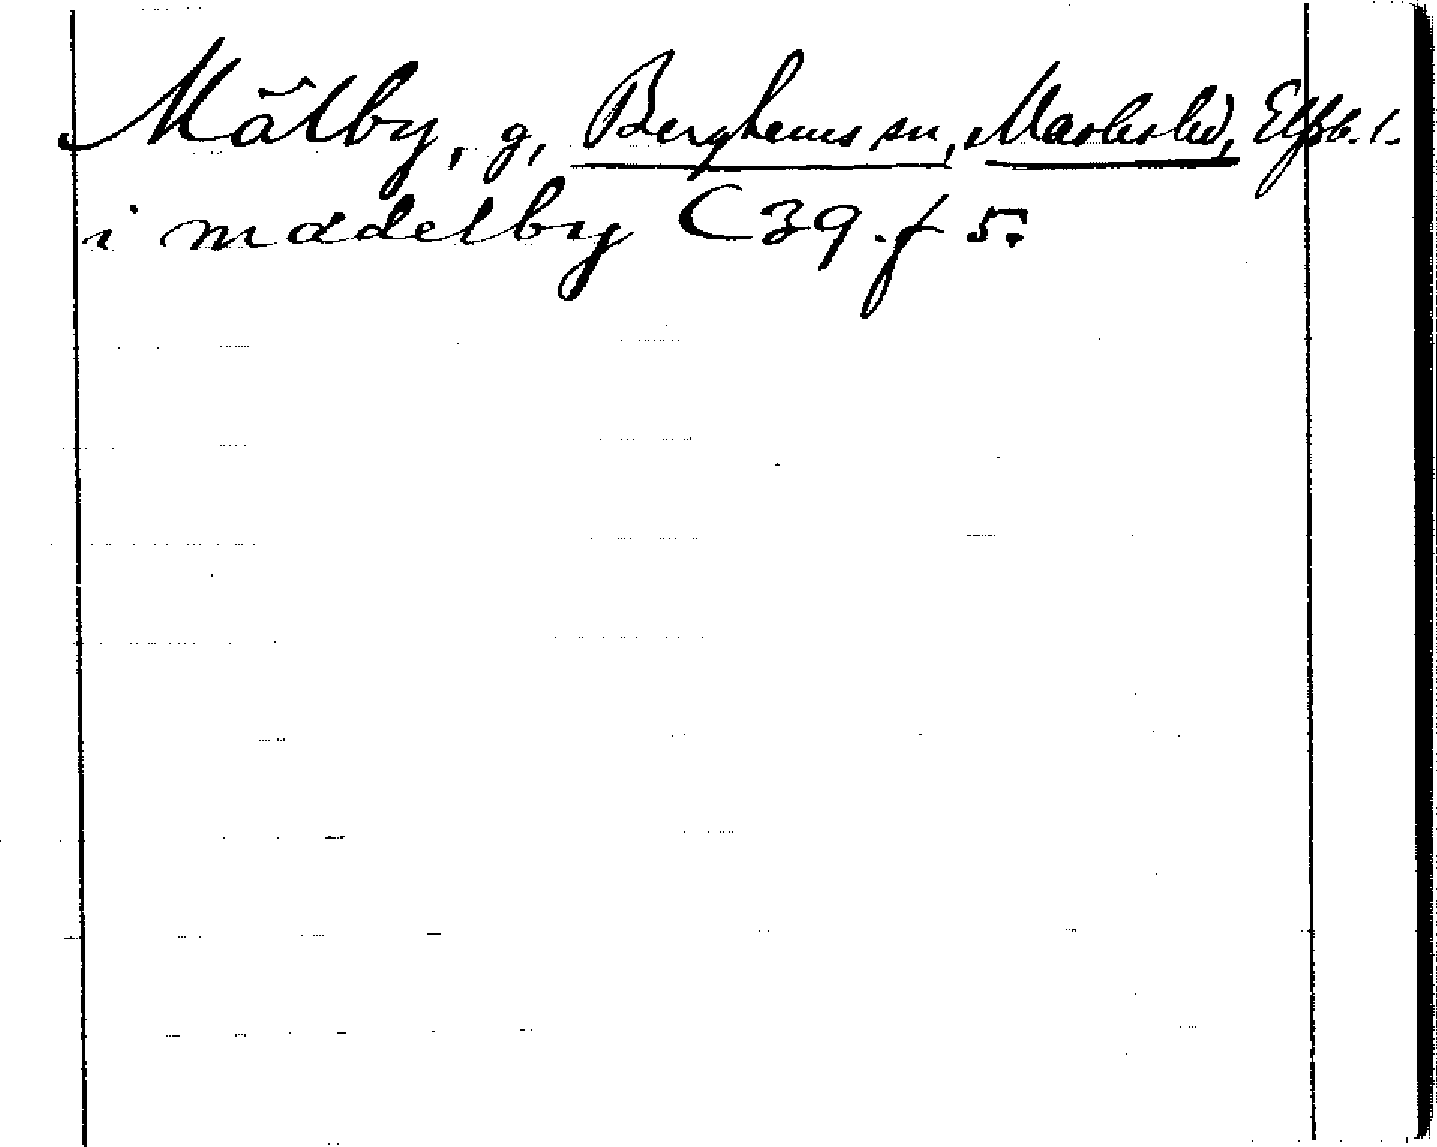 Målby, g, Berghems sn, Marks hd, Elfsb. l.
i mädelby C 39. f 5.